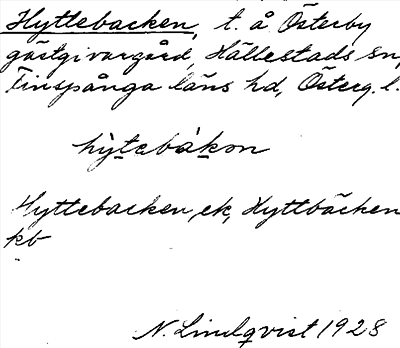 Hyttebacken, t. å Österby
gästgivargård, Hällestads sn,
Finspånga läns hd, Österg. l.
hy̆tebákon
Hyttebacken, ek, Hyttbäcken
kb
N. Lindqvist 1928